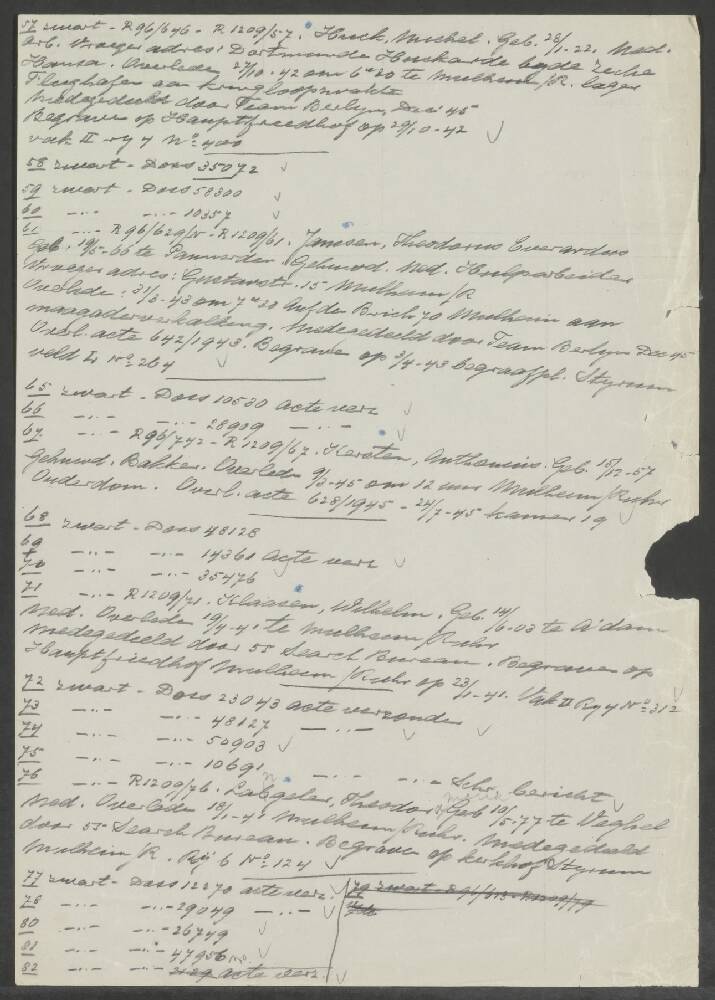 57 zwart - R96/646 - R1209/57. Huck, Michel. Geb. 28/1-22. Ned.
Arb. Vroeger adres: Dortmunde Huckarde bij de Zeche
Hansa. Overleden 27/10-42 om 6.20 te Mulheim/R. lager
Flughafen aan
Medegedeeld door Team Berlijn, Dec 45
Begraven op Hauptfriedhof op 29/10-42
vak II rij 4 No 400
58 zwart - Doss 35072
59 zwart - Doss 58300
60 -..- -..- 10357
61 -..- R96/629/N - R1209/61. Janssen, Theodorus Everardus
Geb. 19/5-66 te Pannerden. Gehuwd. Ned. Hulparbeider
Vroeger adres: Gustavstr. 15 Mulheim/R
Overlede. 31/3-43 om 7.20 Auf den 70 Mulheim aan
maagaderverkalking. Medegedeeld door Team Berlijn Dec 45
Overl. acte 642/1943. Begraven op 3/4-43 begraafpl. Styrum
veld L No 264
65 zwart - Doss 10530 acte verz
66 -..- -..- 28909 -..-
67 -..- R96/742 - R1209/67. Kersten, Anthonius. Geb. 15/12-57
Gehuwd. Bakker. Overleden 9/3-45 om 12 uur Mulheim/Ruhr
Ouderdom. Overl. acte 628/1945 - 24/7-45 kamer 19
68 zwart - Doss 48128
69 -..- -..- 14361 acte verz
70 -..- -..- 35476
71 -..- R1209/71. Klaasen, Wilhelm. Geb. 14/6-03 te A'dam
Ned. Overleden 19/4-41 te Mulheim/Ruhr
medegedeeld door 55 Search Bureau. Begraven op
Hauptfriedhof Mulheim/Ruhr op 23/1-41. Vak II Rij 4 No 312
72 zwart - Doss 23043 acte verzonden
73 -..- -..- 48127 -..-
74 -..- -..- 50903
75 -..- -..- 10691 -..- -..- Schr. bericht
76 -..- R1209/76. Theodor Geb 10/5-77 te Veghel
Ned. Overleden 18/1-41 Mulheim/Ruhr. Medegedeeld
door 55 Search Bureau. Begraven op kerkhof Styrum
Mulheim/R. Rij 6 No 124
77 zwart - Doss 12270 acte verz.
78 -..- -..- 29049 -..-
80 -..- -..- 26749
81 -..- -..- 47956
82 -..- -..- acte verz.
79 zwart - R1209/79